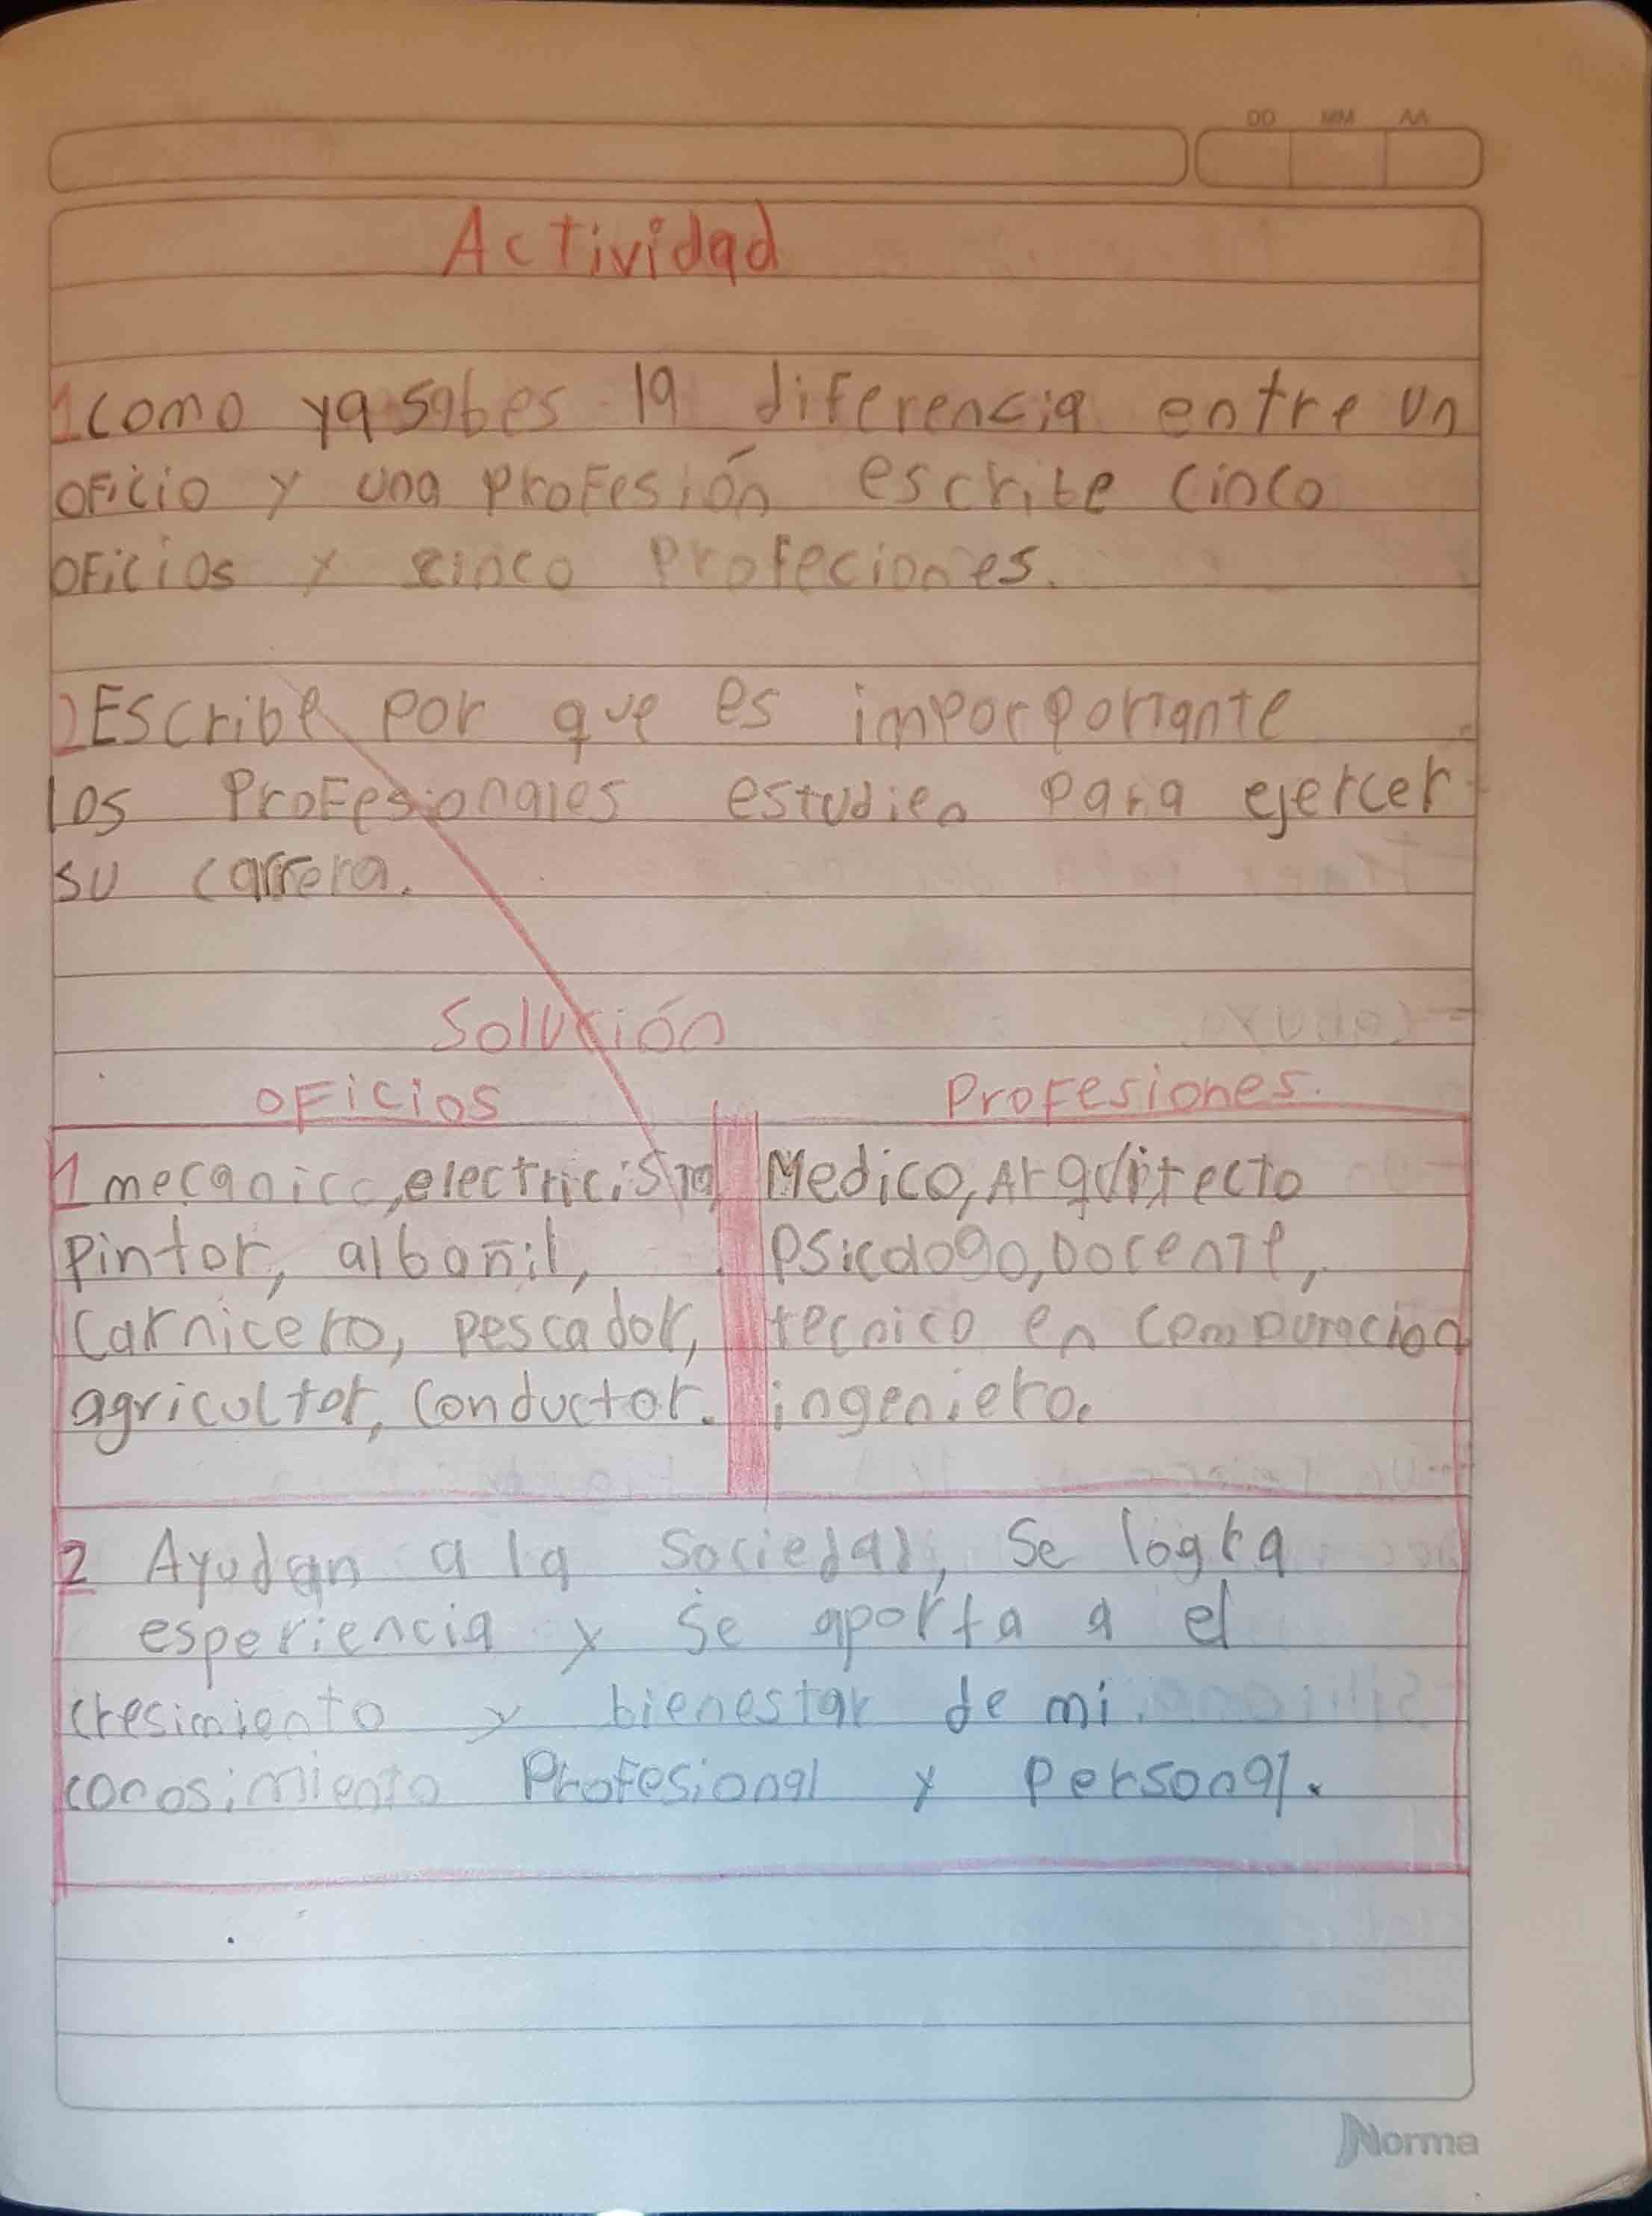 DD MM AA
Actividad
1 Como ya sabes la diferencia entre un
oficio y una profesión escribe cinco
oficios y cinco profeciones.
2 Escribe por que es imporportante
los profesionales estudien para ejercer
su carrera.
Solución
oficios Profesiones.
1 mecanico, electricista Medico, Arquitecto
pintor, albañil, psicologo, Docente,
carnicero, pescador, tecnico en computacion
agricultor, conductor. ingeniero.
2 Ayudan a la sociedad, se logra
esperiencia y se aporta a el
cresimiento y bienestar de mi
conosimiento profesional y personal.
Norma